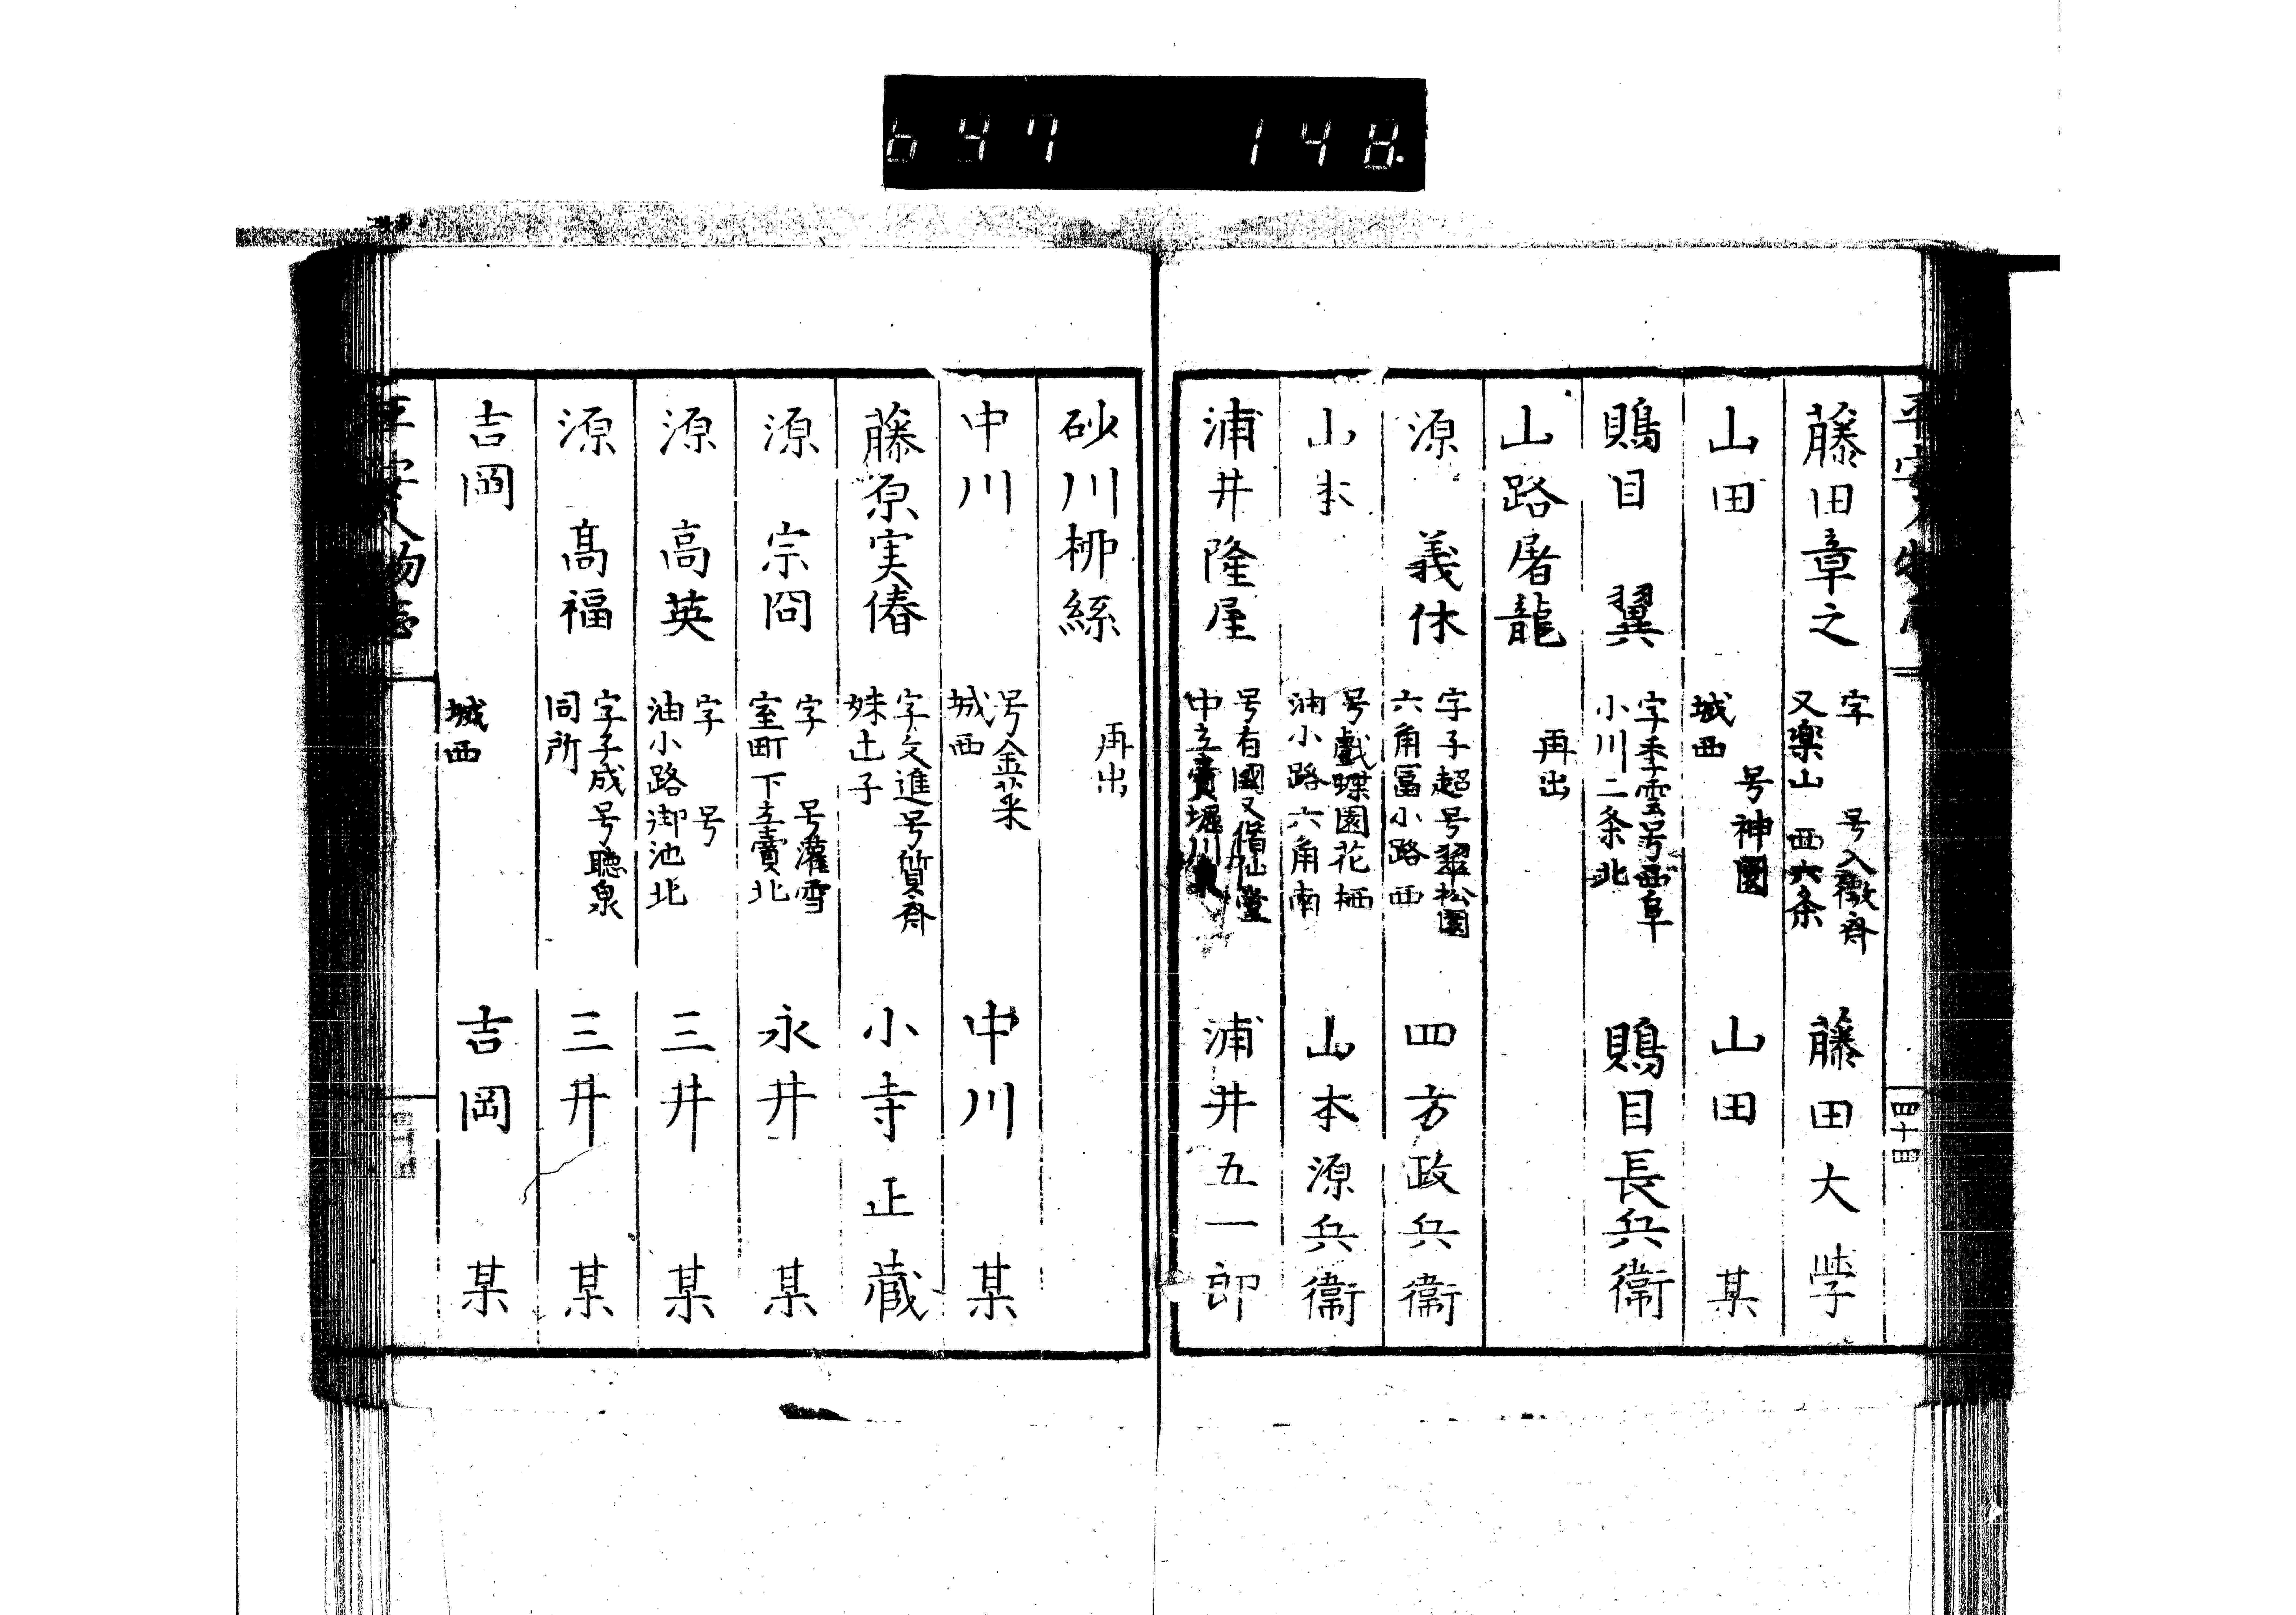 647 148
平安人物志
四十四
藤田章之
字 号入徵斎
又楽山 西六条
藤田大学
山田
号神園
城西
山田 某
鵙目 翼
字季雲号西阜
小川二条北
鵙目長兵衞
山路屠龍
再出
源 義休
字子超号翠松園
六角冨小路西
四方政兵衞
山本
号戯蝶園花栖
油小路六角南
山本源兵衞
浦井隆屋
号有國又借山堂
中立賣堀川東
浦井五一郎
砂川栁絲
再出
中川
号金菜
城西
中川 某
藤原実偆
字文進号質斎
妹𡈽子
小寺正蔵
源 宗冏
字 号灌雪
室町下立賣北
永井 某
源 高英
字 号
油小路御池北
三井 某
源 髙福
字子成号聴泉
同所
三井 某
吉岡
城西
吉岡 某
平安人物志